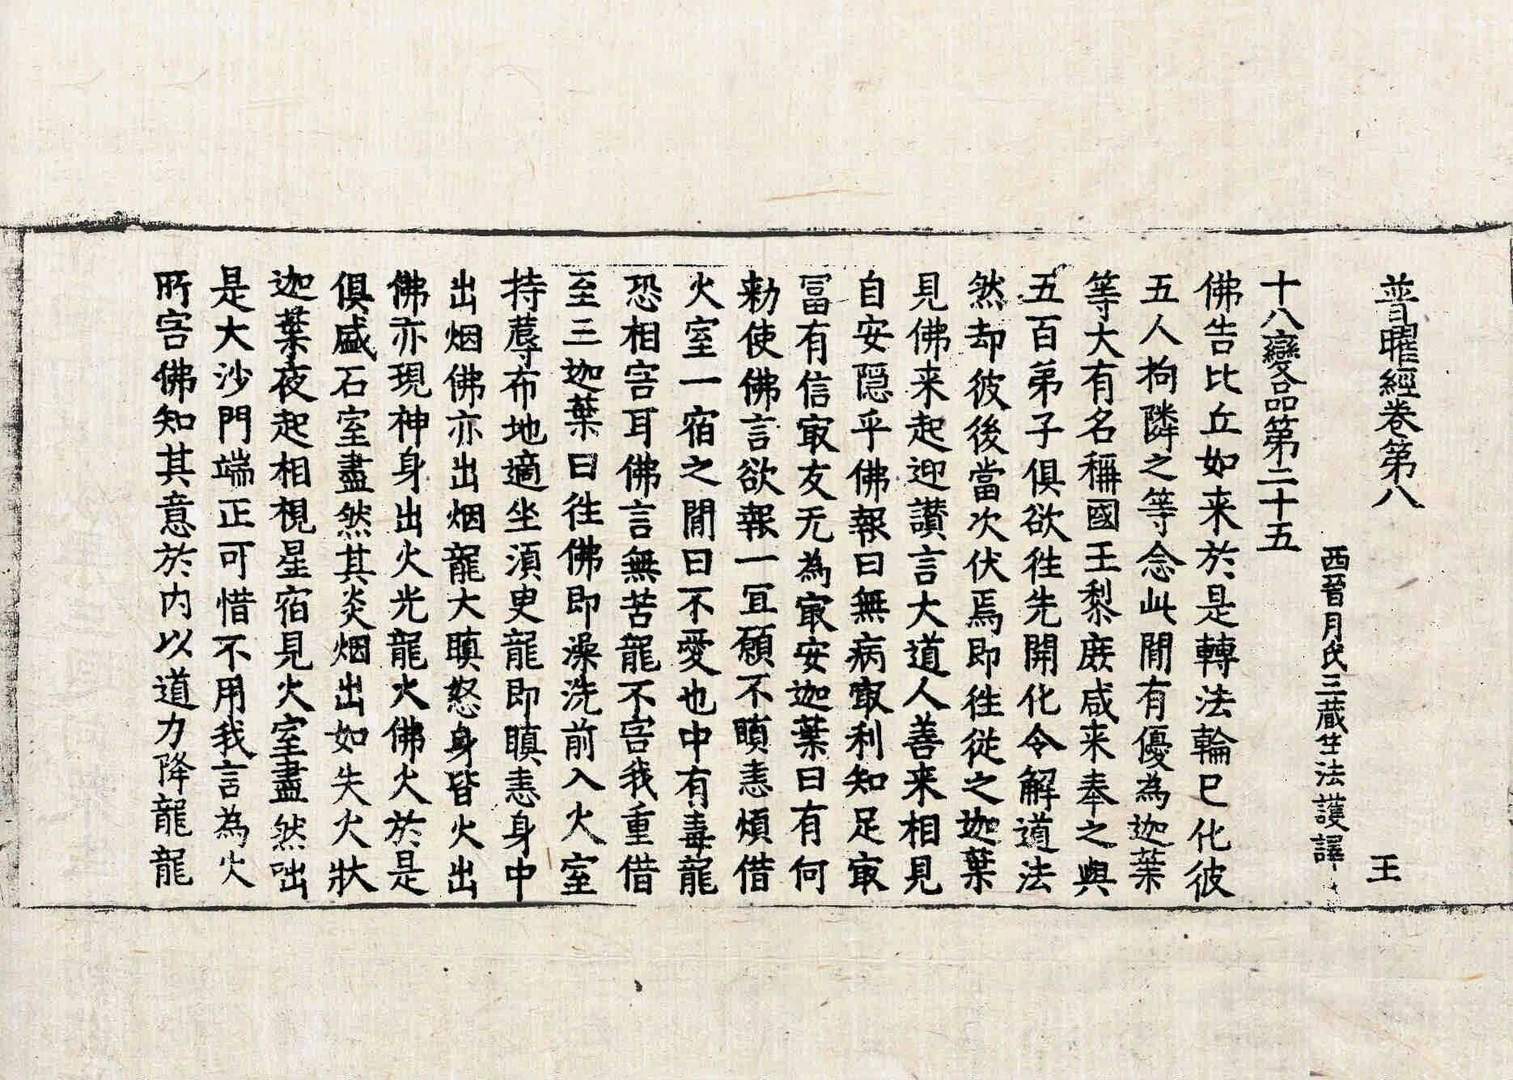 普曜經卷第八　王
西晉月氏三藏竺法護譯
十八變品第二十五
佛告比丘如来於是轉法輪已化彼
五人拘隣之等念此間有優為迦葉
等大有名稱國王黎庶咸来奉之與
五百弟子俱欲往先開化令解道法
然却彼後當次伏焉即往從之迦葉
見佛来起迎讃言大道人善来相見
自安隠乎佛報曰無病㝡利知足㝡
冨有信㝡友无為㝡安迦葉曰有何
勑使佛言欲報一冝願不瞋恚煩借
火室一宿之間曰不愛也中有毒龍
恐相害耳佛言無苦龍不害我重借
至三迦葉曰往佛即澡洗前入火室
持蓐布地適坐湏臾龍即瞋恚身中
出烟佛亦出烟龍大瞋怒身皆火出
佛亦現神身出火光龍火佛火於是
俱盛石室盡然其炎烟出如失火狀
迦葉夜起相視星宿見火室盡然咄
是大沙門端正可惜不用我言為火
所害佛知其意於内以道力降龍龍